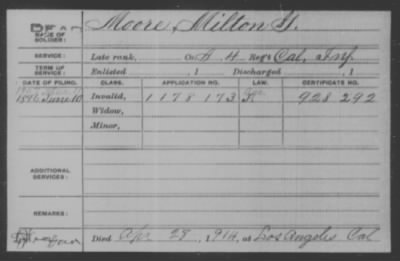 Moore, Milton
NAME OF SOLDIER:
SERVICE: Late rank, Co. A, 4 Reg't Cal, Inf.
TERM OF SERVICE: Enlisted , 1 Discharged , 1
DATE OF FILING. CLASS. APPLICATION NO. LAW. CERTIFICATE NO.
1896 June 10 Invalid, 1178 173 928 292
Widow,
Minor,
ADDITIONAL SERVICES:
REMARKS:
Died Apr 23, 1914, at Los Angeles Cal